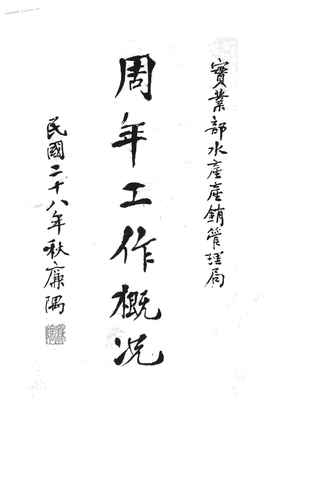 實業部水產產銷管理局
周年工作概况
民國二十八年秋廉隅